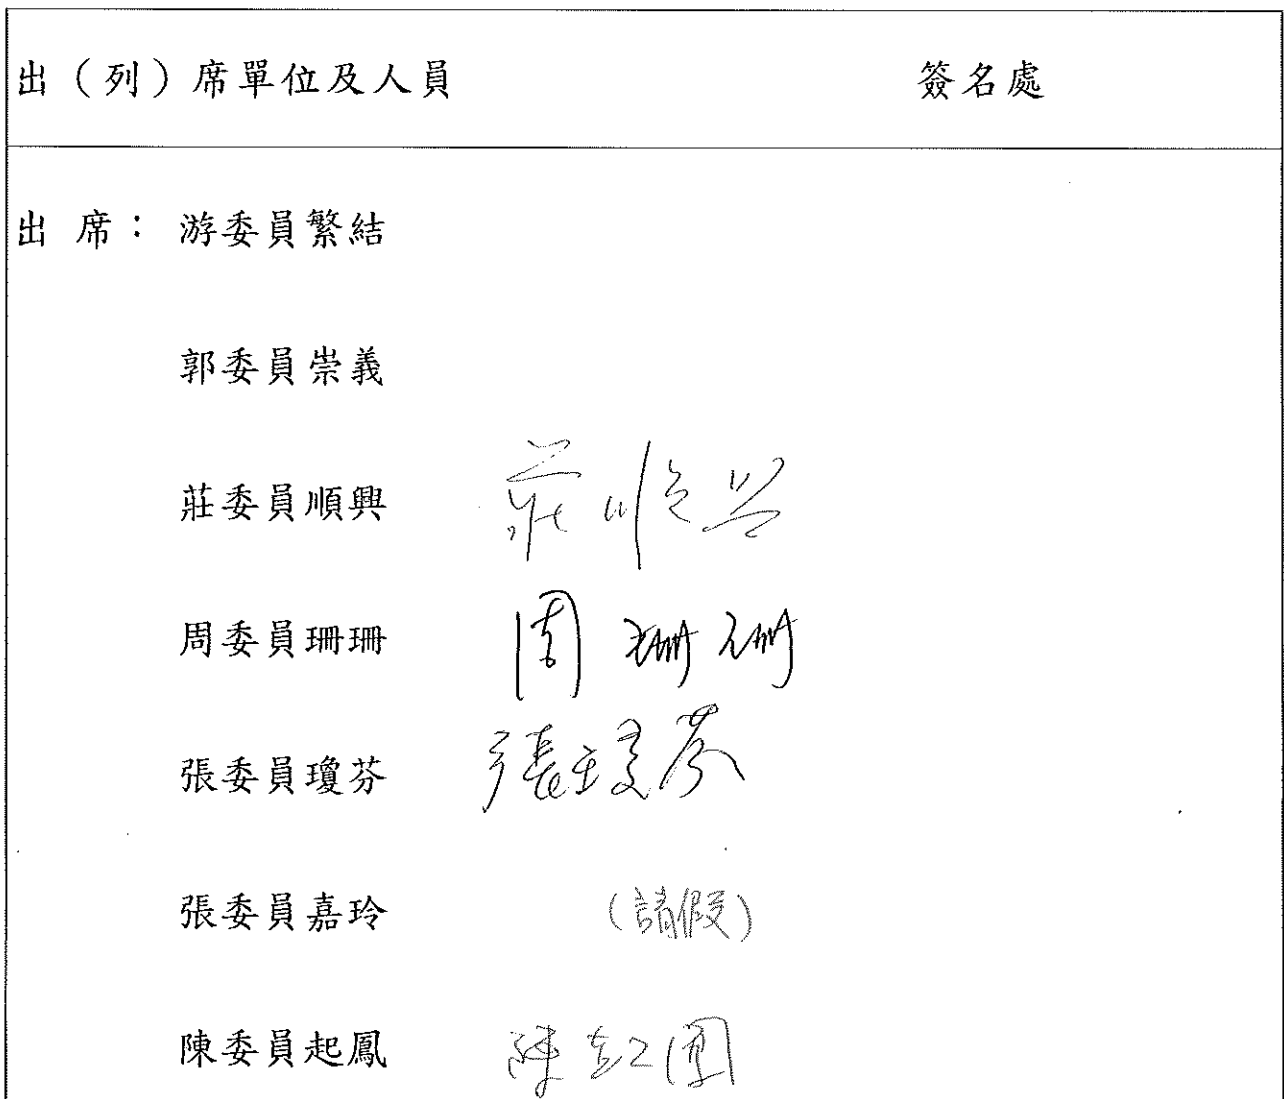 出（列）席單位及人員 簽名處
出 席： 游委員繁結
郭委員崇義
莊委員順興 莊順興
周委員珊珊 周珊珊
張委員瓊芬 張瓊芬
張委員嘉玲 (請假)
陳委員起鳳 陳起鳳